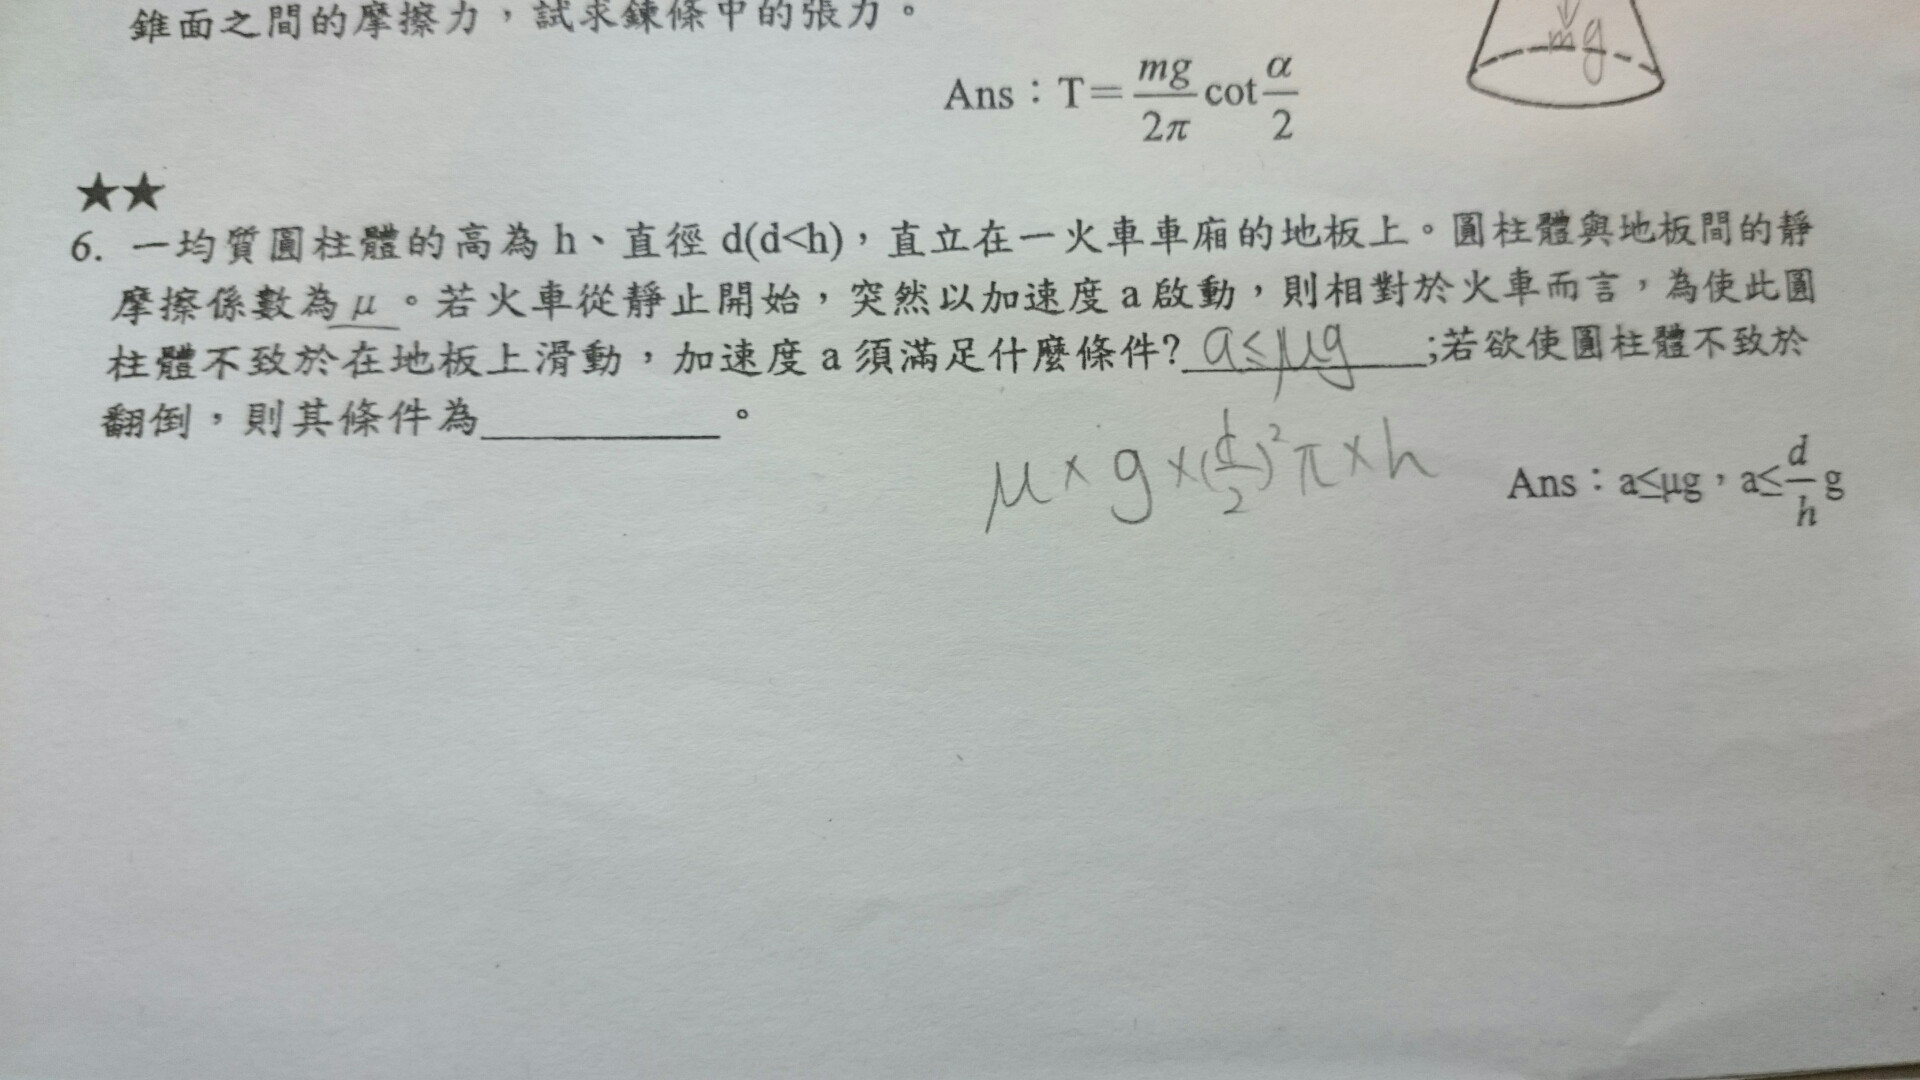 錐面之間的摩擦力，試求鍊條中的張力。
mg
Ans：T＝mg/2π cot α/2
★★
6. 一均質圓柱體的高為 h、直徑 d(d<h)，直立在一火車車廂的地板上。圓柱體與地板間的靜
摩擦係數為 μ 。若火車從靜止開始，突然以加速度 a 啟動，則相對於火車而言，為使此圓
柱體不致於在地板上滑動，加速度 a 須滿足什麼條件? a≤μg ;若欲使圓柱體不致於
翻倒，則其條件為__________。
μ×g×(d/2)²π×h
Ans：a≤μg，a≤d/h g